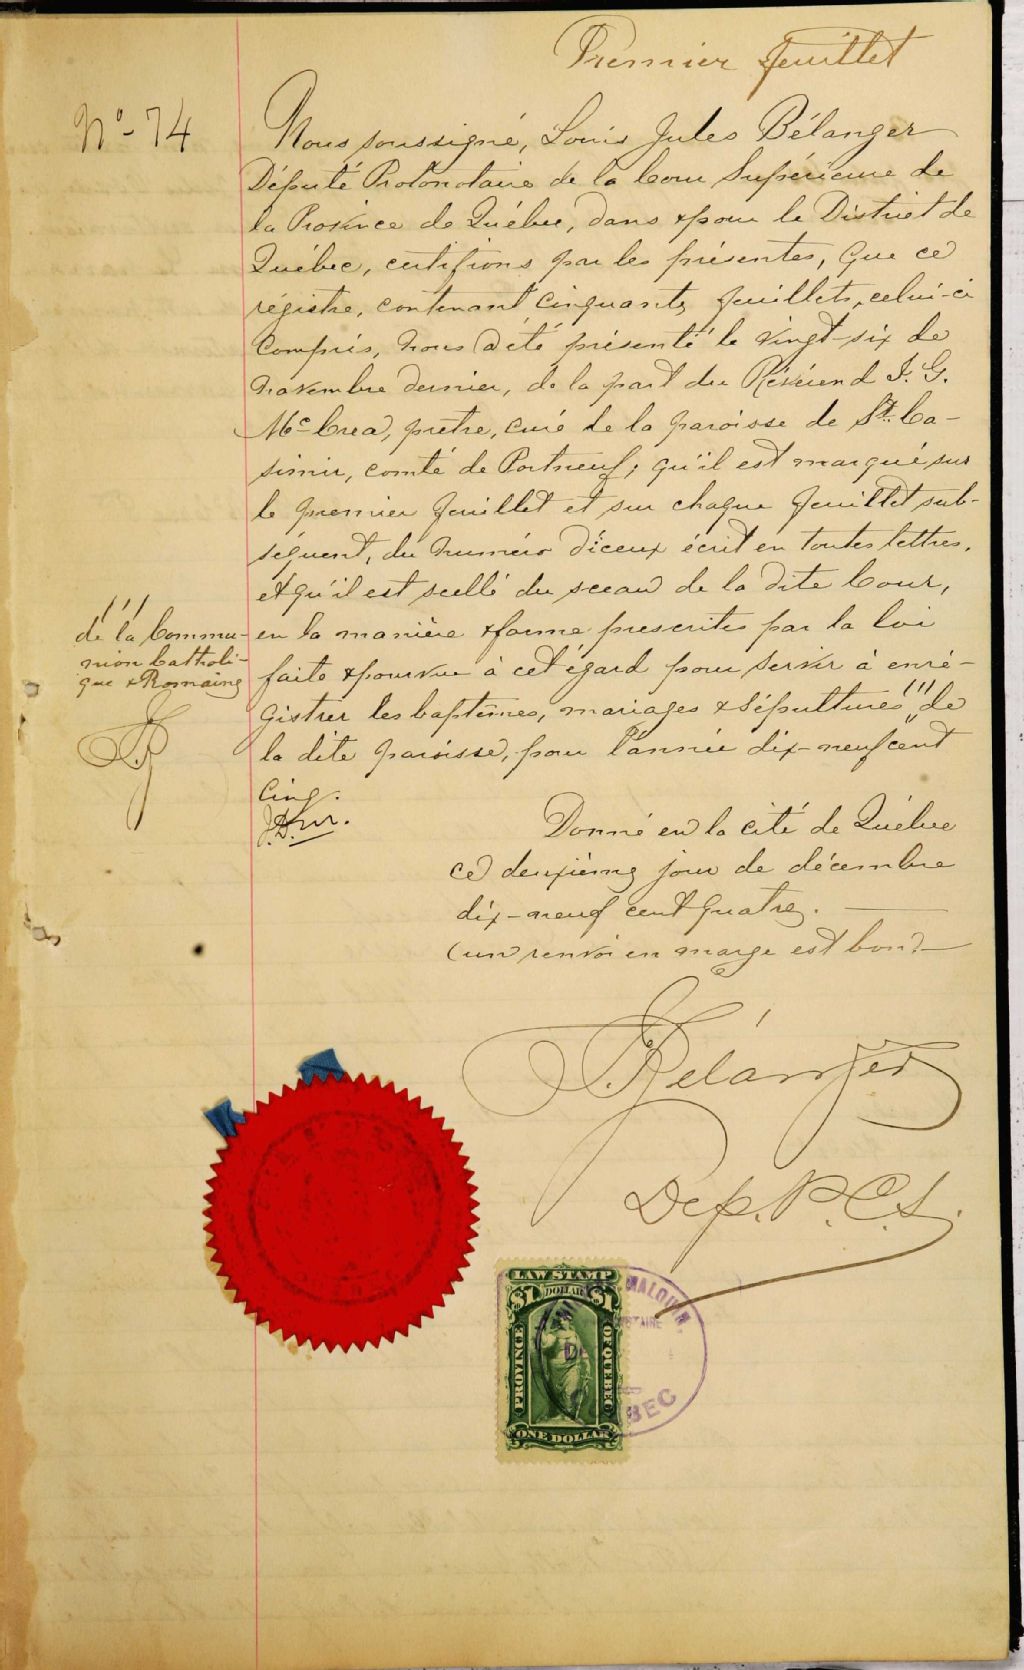 Premier feuillet
No- 74
Nous soussigné, Louis Jules Bélanger
Député Protonotaire de la Cour Supérieure de
la Province de Québec, dans & pour le District de
Québec, certifions par les présentes, que ce
régistre, contenant cinquante feuillets, celui-ci
compris, nous a été présenté le vingt-six de
novembre dernier, de la part du Révérend J. G.
McCrea, prêtre, curé de la paroisse de St. Ca-
simir, comté de Portneuf; qu'il est marqué sur
le premier feuillet et sur chaque feuillet sub-
séquent, du numéro d'iceux écrit en toutes lettres,
et qu'il est scellé du sceau de la dite Cour,
en la manière & forme prescrites par la loi
faite & pourvue à cet égard pour servir à enré-
gistrer les baptêmes, mariages & sépultures /// de
la dite paroisse, pour l'année dix-neuf cent
cinq.
///
de la Commu-
nion Catholi-
que & Romaine
Donné en la cité de Québec
ce deuxième jour de décembre
dix-neuf cent quatre.
(un renvoi en marge est bon)
Bélanger
Dep. P.C.S.
LAW STAMP
$1 DOLLAR $1
PROVINCE OF QUEBEC
ONE DOLLAR
MALOUIN
BEC